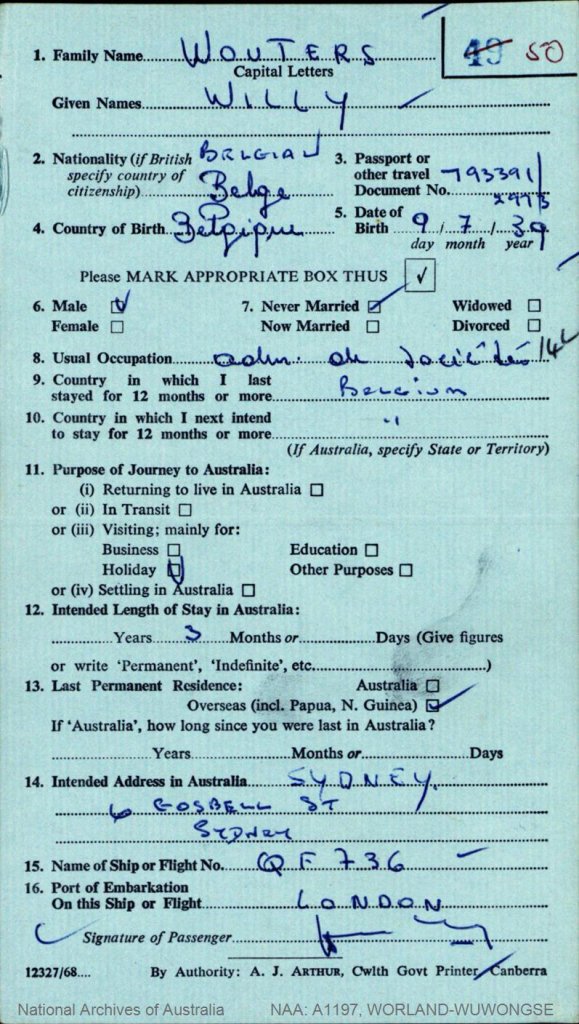 49 50
1. Family Name WOUTERS
Capital Letters
Given Names WILLY
2. Nationality (if British BELGIAN
specify country of
citizenship) Belge
3. Passport or
other travel 793391/
Document No. 2973
4. Country of Birth Belgique
5. Date of
Birth 9/7/39
day month year
Please MARK APPROPRIATE BOX THUS √
6. Male √
Female
7. Never Married √
Now Married
Widowed
Divorced
8. Usual Occupation adm. de sociétés
9. Country in which I last
stayed for 12 months or more Belgium
10. Country in which I next intend
to stay for 12 months or more "
(If Australia, specify State or Territory)
11. Purpose of Journey to Australia:
(i) Returning to live in Australia
or (ii) In Transit
or (iii) Visiting; mainly for:
Business Education
Holiday √ Other Purposes
or (iv) Settling in Australia
12. Intended Length of Stay in Australia:
Years 3 Months or Days (Give figures
or write 'Permanent', 'Indefinite', etc. )
13. Last Permanent Residence: Australia
Overseas (incl. Papua, N. Guinea) √
If 'Australia', how long since you were last in Australia?
Years Months or Days
14. Intended Address in Australia SYDNEY.
6 GOSBELL ST
SYDNEY
15. Name of Ship or Flight No. QF 736
16. Port of Embarkation
On this Ship or Flight LONDON
Signature of Passenger
12327/68.... By Authority: A. J. ARTHUR, Cwlth Govt Printer, Canberra
National Archives of Australia NAA: A1197, WORLAND-WUWONGSE